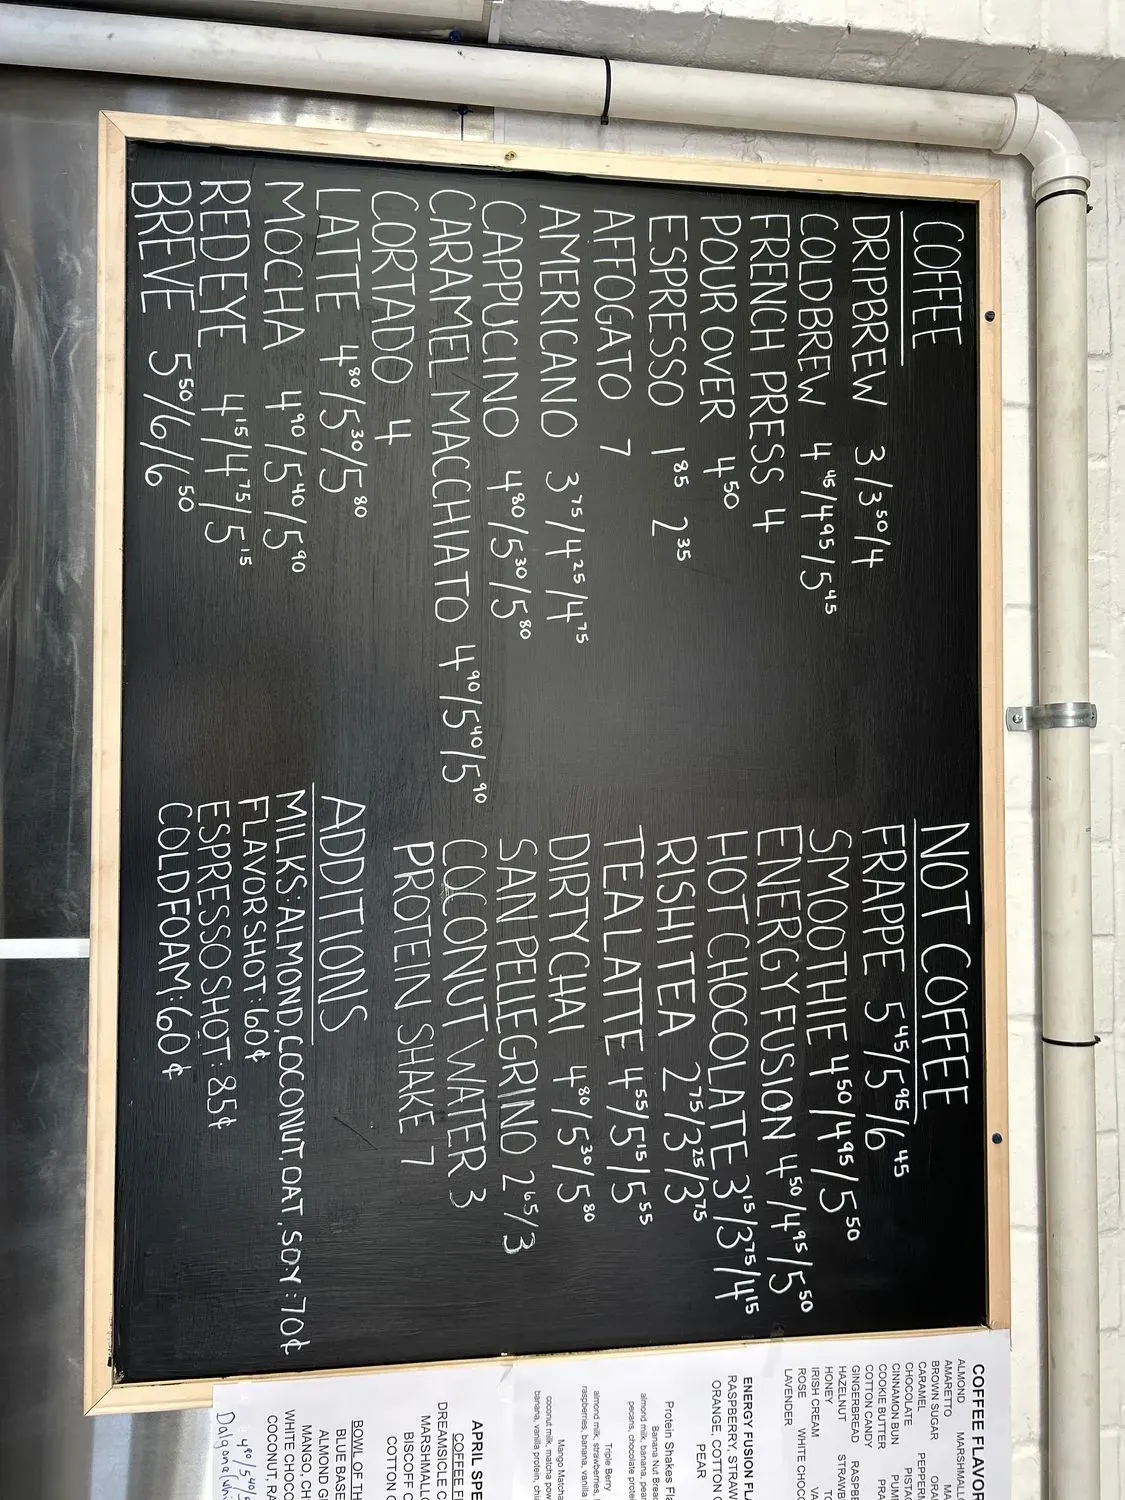 COFFEE
DRIPBREW 3/3⁵⁰/4
COLDBREW 4⁴⁵/4⁹⁵/5⁴⁵
FRENCH PRESS 4
POUR OVER 4⁵⁰
ESPRESSO 1⁸⁵ 2³⁵
AFFOGATO 7
AMERICANO 3⁷⁵/4²⁵/4⁷⁵
CAPPUCINO 4⁸⁰/5³⁰/5⁸⁰
CARAMEL MACCHIATO 4⁹⁰/5⁴⁰/5⁹⁰
CORTADO 4
LATTE 4⁸⁰/5³⁰/5⁸⁰
MOCHA 4⁹⁰/5⁴⁰/5⁹⁰
RED EYE 4¹⁵/4⁷⁵/5¹⁵
BREVE 5⁵⁰/6/6⁵⁰
NOT COFFEE
FRAPPE 5⁴⁵/5⁹⁵/6⁴⁵
SMOOTHIE 4⁵⁰/4⁹⁵/5⁵⁰
ENERGY FUSION 4⁵⁰/4⁹⁵/5⁵⁰
HOT CHOCOLATE 3¹⁵/3⁷⁵/4¹⁵
RISHI TEA 2⁷⁵/3²⁵/3⁷⁵
TEA LATTE 4⁵⁵/5¹⁵/5⁵⁵
DIRTY CHAI 4⁸⁰/5³⁰/5⁸⁰
SAN PELLEGRINO 2⁶⁵/3
COCONUT WATER 3
PROTEIN SHAKE 7
ADDITIONS
MILKS: ALMOND, COCONUT, OAT, SOY: 70¢
FLAVOR SHOT: 60¢
ESPRESSO SHOT: 85¢
COLD FOAM: 60¢
COFFEE FLAVOR
ALMOND MARSHMALL
AMARETTO MA
BROWN SUGAR ORA
CARAMEL PEPPERM
CHOCOLATE PISTA
CINNAMON BUN PUM
COOKIE BUTTER PRA
COTTON CANDY
GINGERBREAD RASPBE
HAZELNUT STRAWB
HONEY TO
IRISH CREAM VA
ROSE WHITE CHOC
LAVENDER
ENERGY FUSION FLA
RASPBERRY, STRAW
ORANGE, COTTON C
PEAR
Protein Shakes Fla
Banana Nut Bread
almond milk, banana, pean
pecans, chocolate prote
Triple Berry
almond milk, strawberries,
raspberries, banana, vanilla
Mango Matcha
coconut milk, matcha pow
banana, vanilla protein, chi
APRIL SPE
COFFEE F
DREAMSICLE C
MARSHMALL
BISCOFF C
COTTON C
BOWL OF TH
BLUE BASE
ALMOND G
MANGO, CH
WHITE CHOCO
COCONUT, RA
4⁸⁰/5⁴⁰/
Dalgona